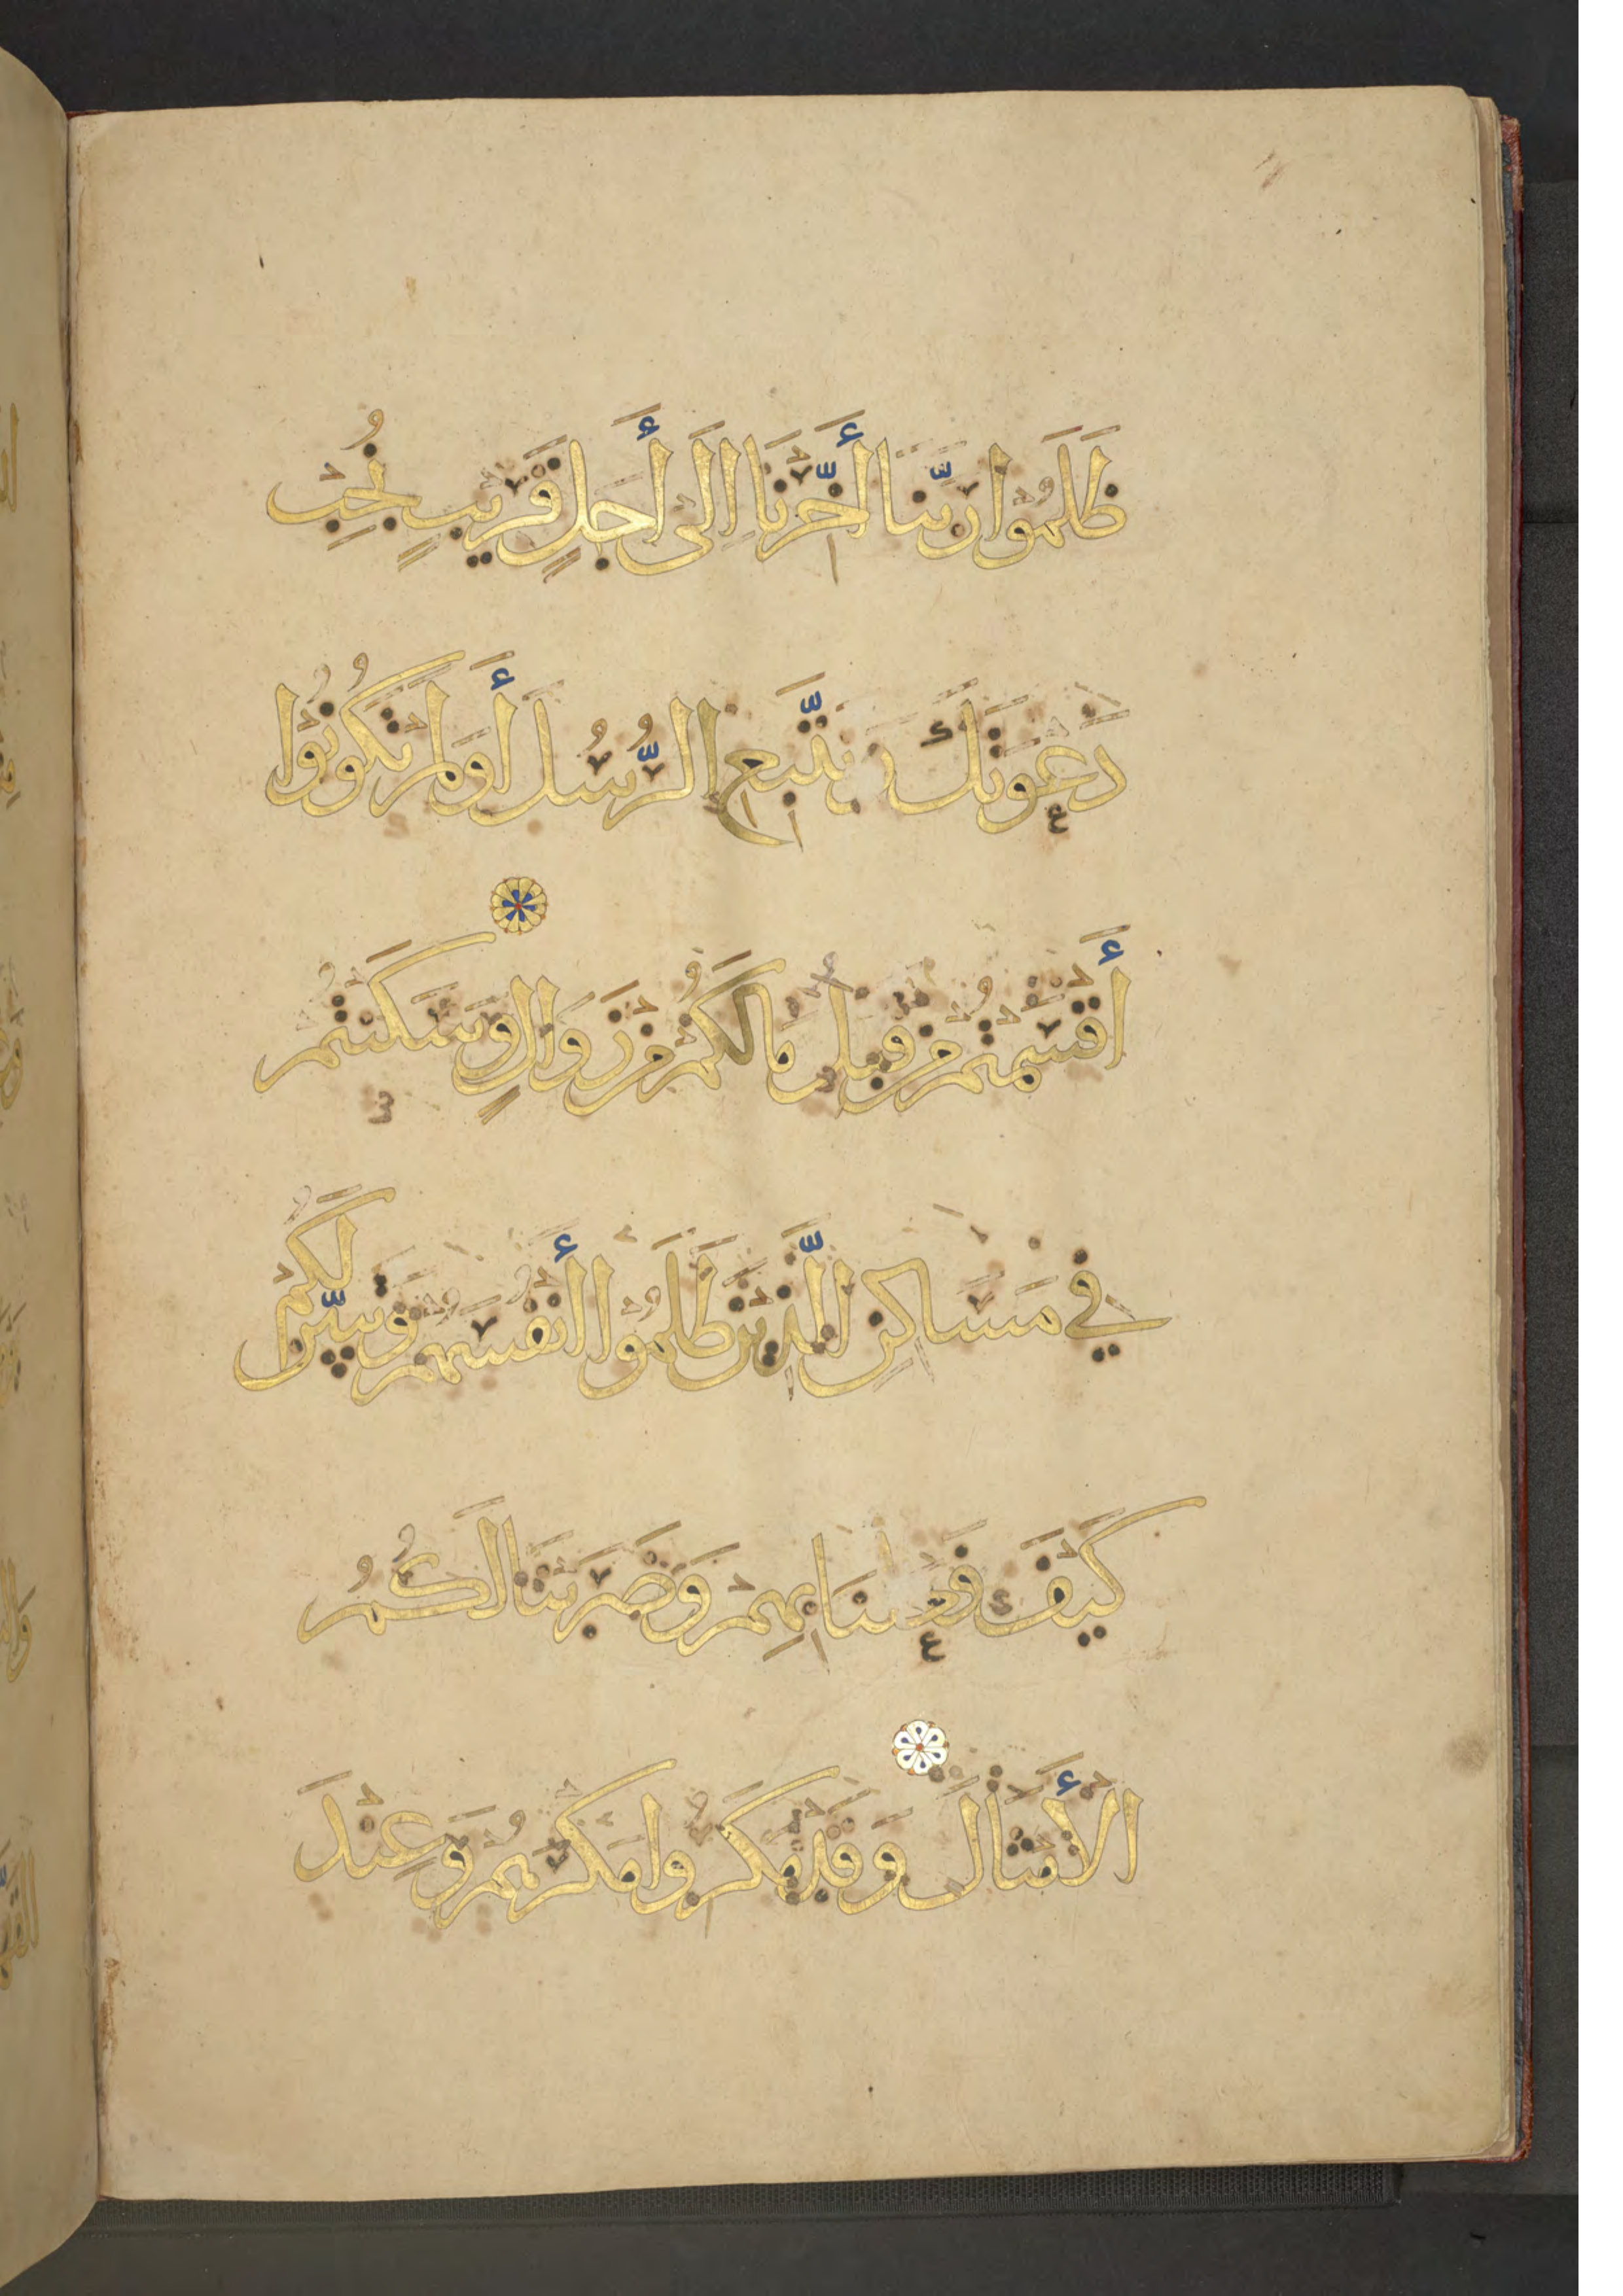 ظَلَمُوا رَبَّنَا أَخِّرْنَا إِلَى أَجَلٍ قَرِيبٍ نُجِبْ
دَعْوَتَكَ وَنَتَّبِعِ الرُّسُلَ أَوَلَمْ تَكُونُوا
أَقْسَمْتُمْ مِنْ قَبْلُ مَا لَكُمْ مِنْ زَوَالٍ وَسَكَنْتُمْ
فِي مَسَاكِنِ الَّذِينَ ظَلَمُوا أَنْفُسَهُمْ وَتَبَيَّنَ لَكُمْ
كَيْفَ فَعَلْنَا بِهِمْ وَضَرَبْنَا لَكُمُ
الْأَمْثَالَ وَقَدْ مَكَرُوا مَكْرَهُمْ وَعِنْدَ